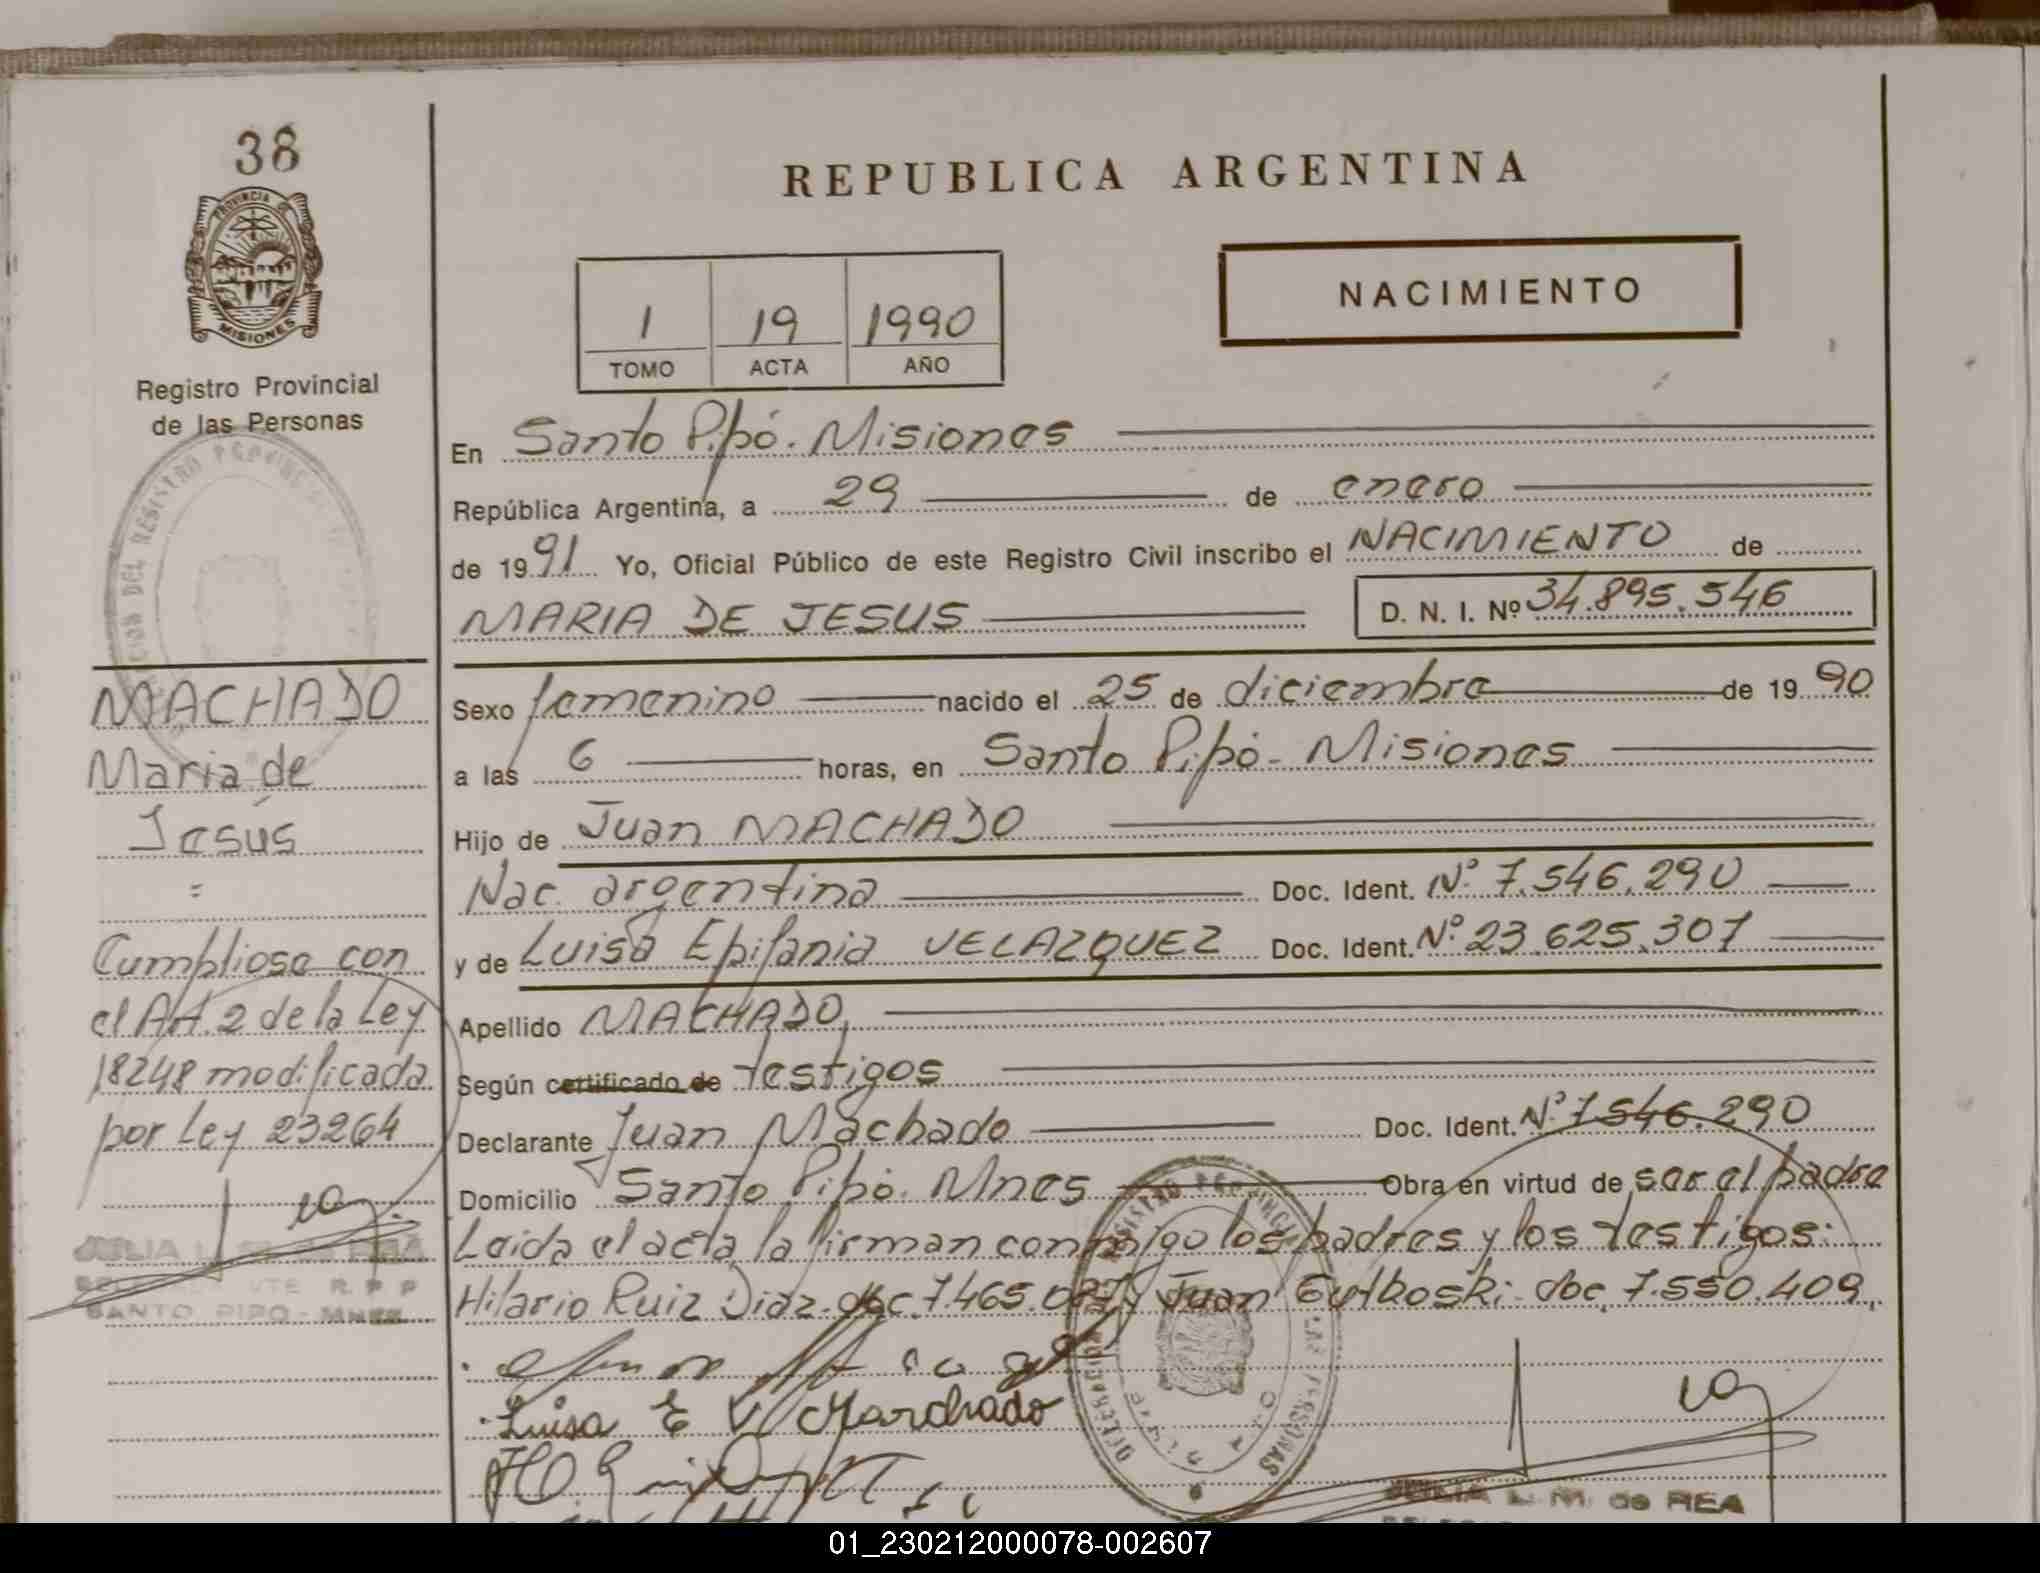 38
PROVINCIA DE
MISIONES
Registro Provincial
de las Personas
MACHADO
Maria de
Jesús
=
Cumpliose con
el Art. 2 de la Ley
18248 modificada
por Ley 23264
SANTO PIPO - MNES.
REPUBLICA ARGENTINA
1 19 1990
TOMO ACTA AÑO
NACIMIENTO
En Santo Pipó - Misiones
República Argentina, a 29 de enero
de 1991 Yo, Oficial Público de este Registro Civil inscribo el NACIMIENTO de
MARIA DE JESUS D. N. I. Nº 34.895.546
Sexo femenino nacido el 25 de diciembre de 1990
a las 6 horas, en Santo Pipó - Misiones
Hijo de Juan MACHADO
Nac. argentina Doc. Ident. Nº 7.546.290
y de Luisa Epifania VELAZQUEZ Doc. Ident. Nº 23.625.307
Apellido MACHADO
Según certificado de testigos
Declarante Juan Machado Doc. Ident. Nº 7.546.290
Domicilio Santo Pipó. Mnes Obra en virtud de ser el padre
Leida el acta la firman conmigo los padres y los testigos:
Hilario Ruiz Diaz doc. 7.465.087 y Juan doc. 7.550.409
Luisa E V Marchado
JULIA L. M. de REA
01_230212000078-002607